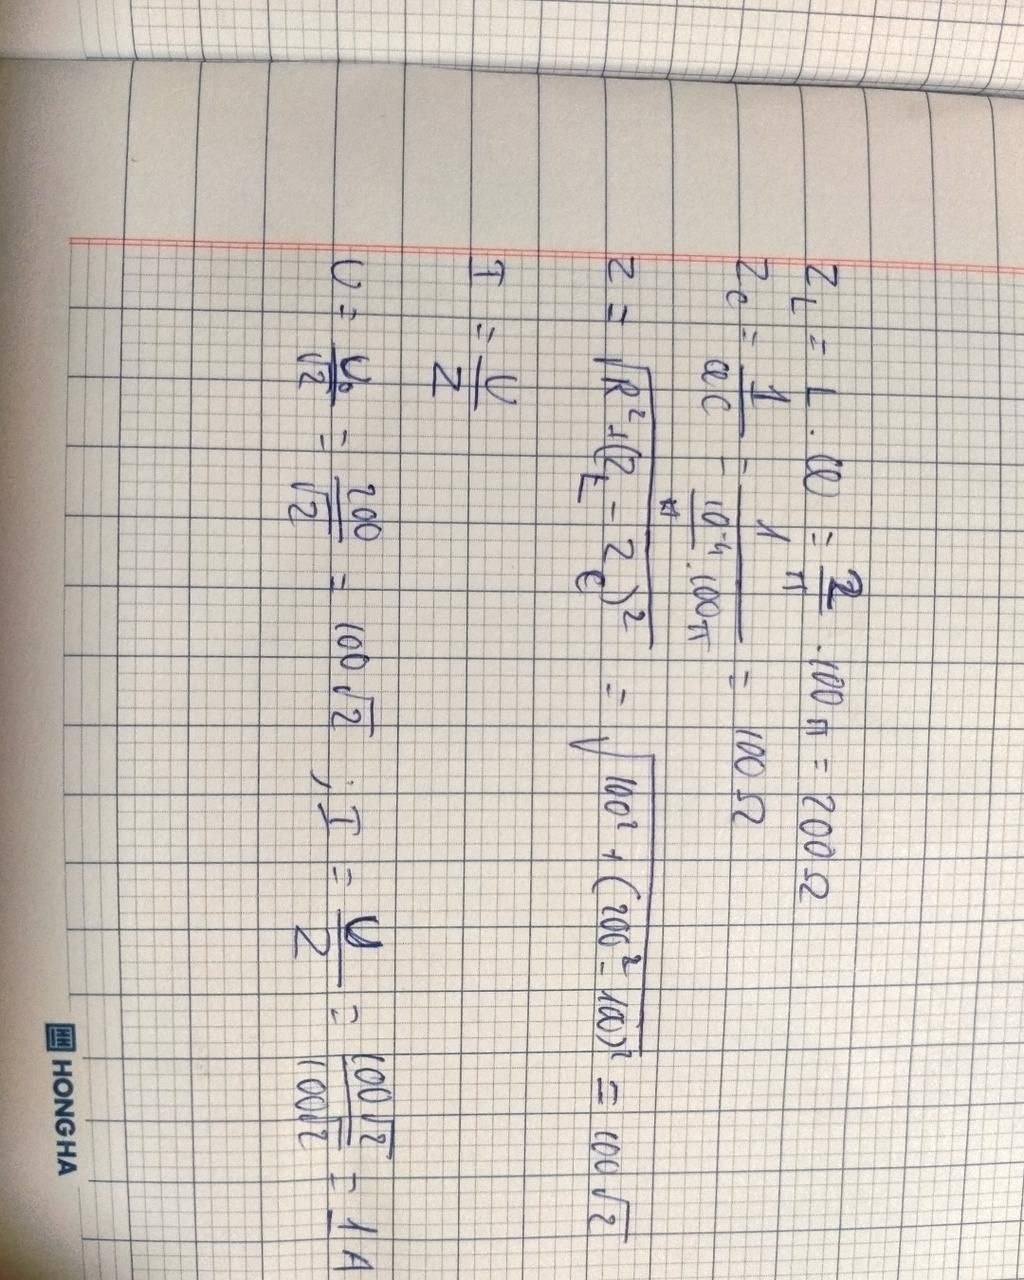 Z_L = L . ω = 2/π . 100π = 200Ω
Z_C = 1/ωC = 1/(10^-4/π . 100π) = 100Ω
Z = √(R² + (Z_L - Z_C)²) = √(100² + (200² - 100)²) = 100√2
I = U/Z
U = U₀/√2 = 200/√2 = 100√2 ; I = U/Z = 100√2/100√2 = 1A
HONG HA